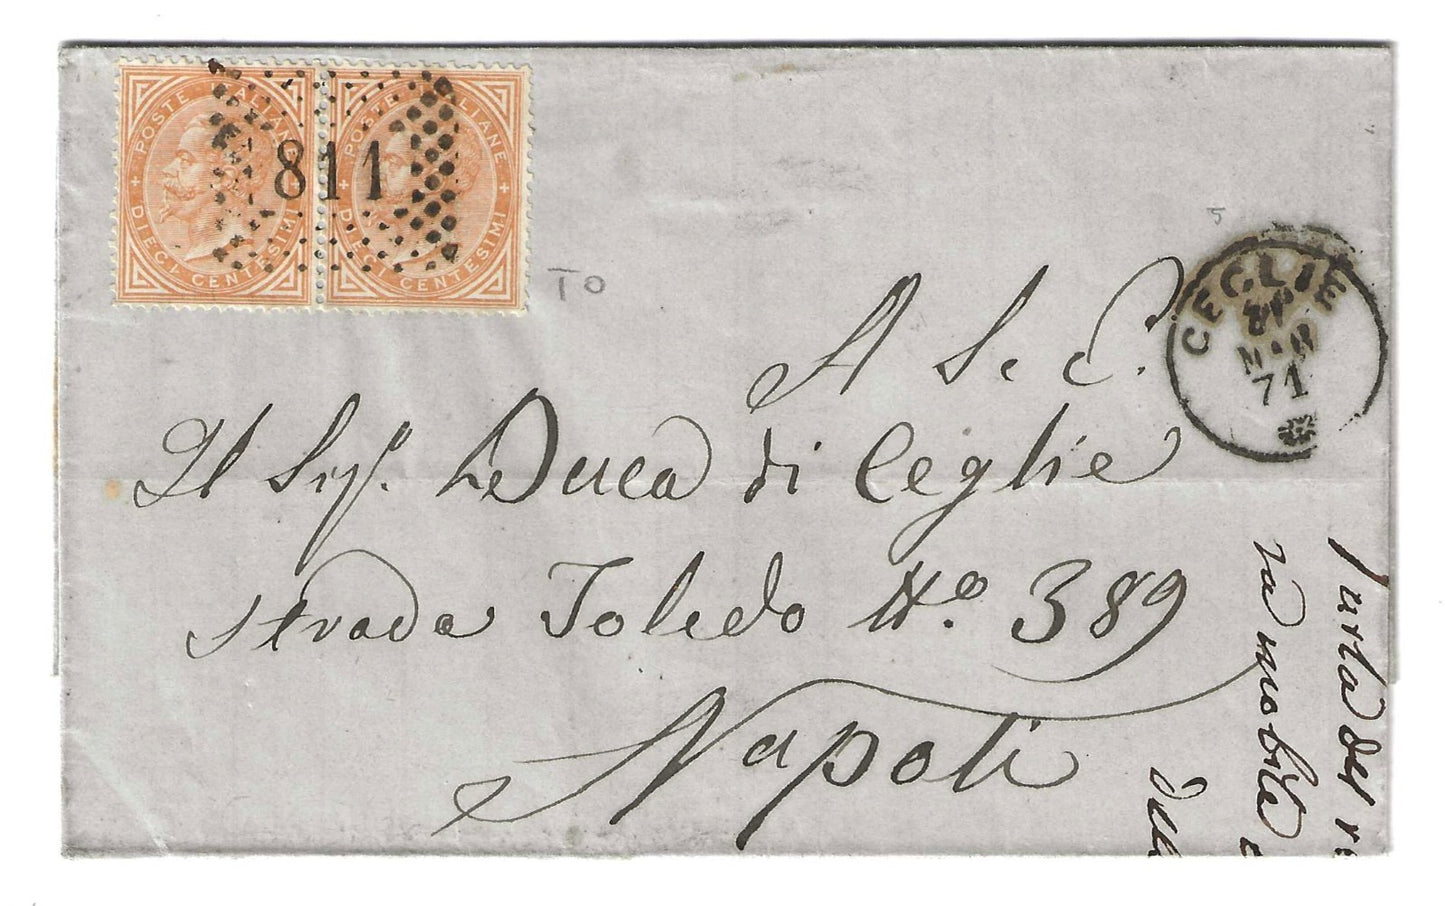 POSTE ITALIANE
DIECI CENTESIMI
POSTE ITALIANE
DIECI CENTESIMI
811
TO
5
CEGLIE
MAR
71
A S. E.
Il Sig.r Duca di Ceglie
Strada Toledo No. 389
Napoli
del
mobile